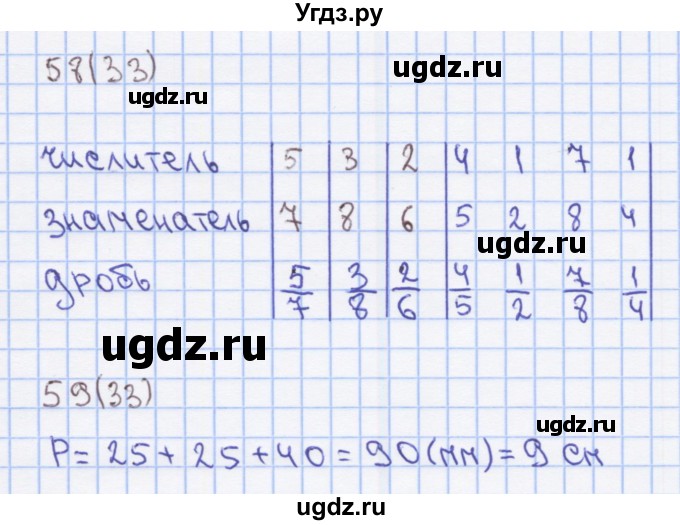 Угдз.ру
58(33)
ugdz.ru
ugdz.ru
числитель 5 3 2 4 1 7 1
знаменатель 7 8 6 5 2 8 4
ugdz.ru
дробь 5/7 3/8 2/6 4/5 1/2 7/8 1/4
ugdz.ru
59(33)
ugdz.ru
P = 25 + 25 + 40 = 90 (мм) = 9 см
ugdz.ru